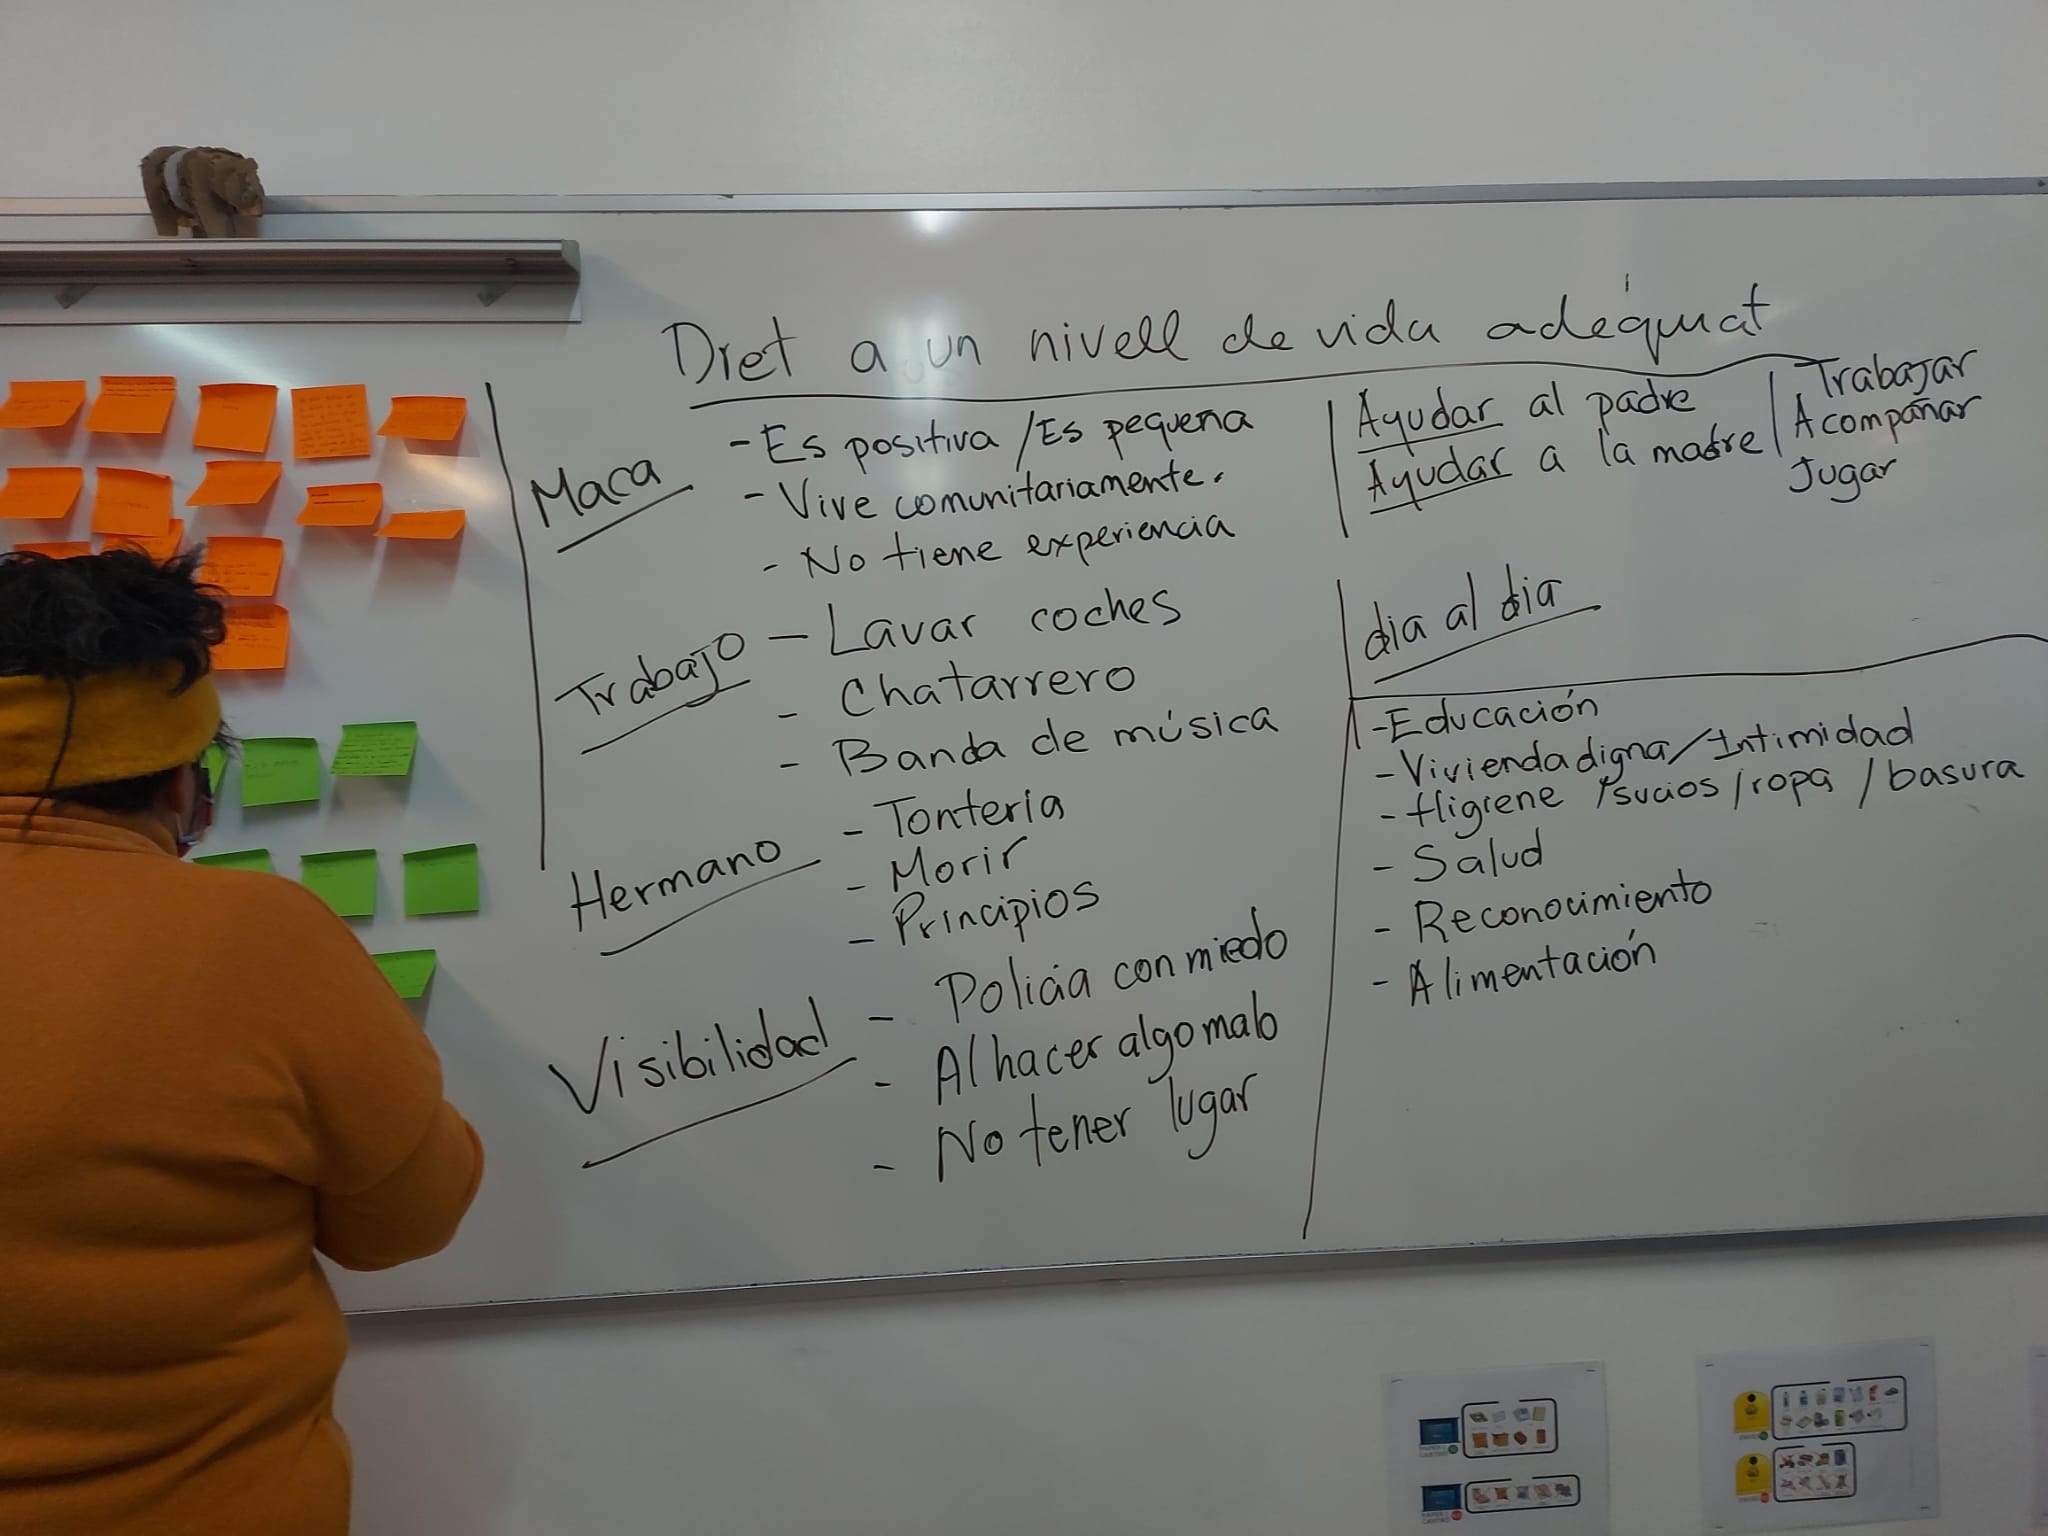 Dret a un nivell de vida adéquat
Maca
- Es positiva / Es pequeña
- Vive comunitariamente.
- No tiene experiencia
Trabajo
- Lavar coches
- Chatarrero
- Banda de música
Hermano
- Tonteria
- Morir
- Principios
Visibilidad
- Policia con miedo
- Al hacer algo malo
- No tener lugar
Ayudar al padre
Ayudar a la madre
Trabajar
Acompañar
Jugar
dia al dia
- Educación
- Vivienda digna / Intimidad
- Higiene / sucios / ropa / basura
- Salud
- Reconocimiento
- Alimentación